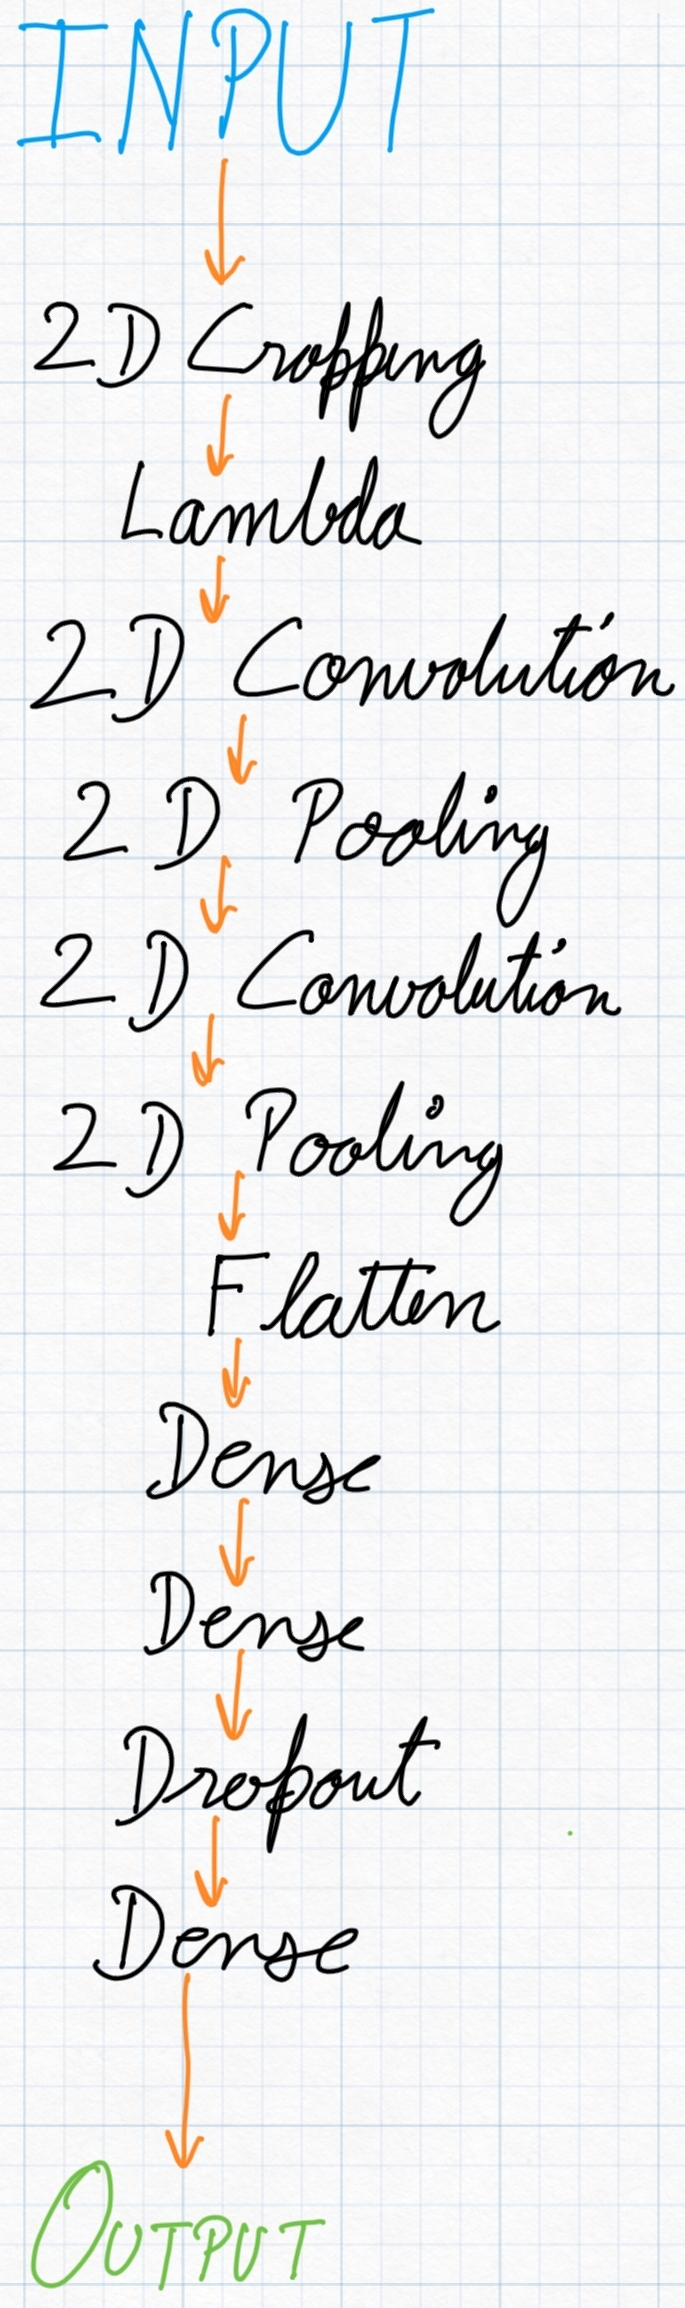 INPUT
2D Cropping
Lambda
2D Convolution
2D Pooling
2D Convolution
2D Pooling
Flatten
Dense
Dense
Dropout
Dense
OUTPUT